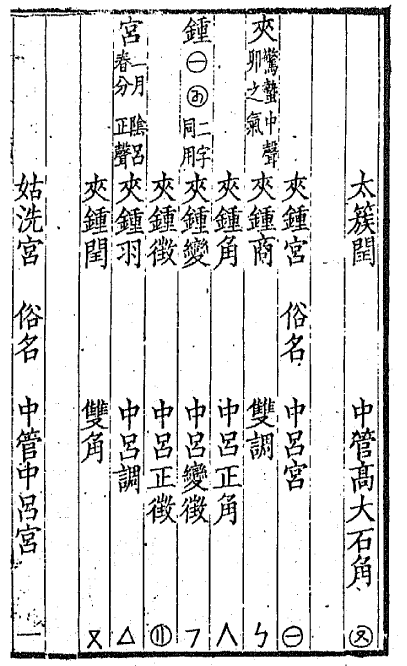 太簇閏 中管高大石角
夾鍾宮 俗名 中呂宮 ㊀
夾 驚蟄中聲
卯之氣
夾鍾商 雙調 ㄣ
夾鍾角 中呂正角 人
鍾 ㊀ 二字
同用
夾鍾變 中呂變徵 フ
夾鍾徵 中呂正徵
宮 二月 陰呂
春分 正聲
夾鍾羽 中呂調 △
夾鍾閏 雙角 ヌ
姑洗宮 俗名 中管中呂宮 一